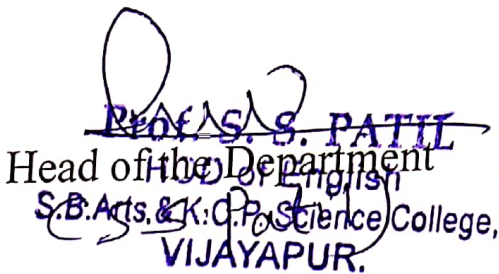 Prof. S. S. PATIL
Head of the Department
HOD of English
S.B.Arts.& K.C.P.Science College,
VIJAYAPUR.